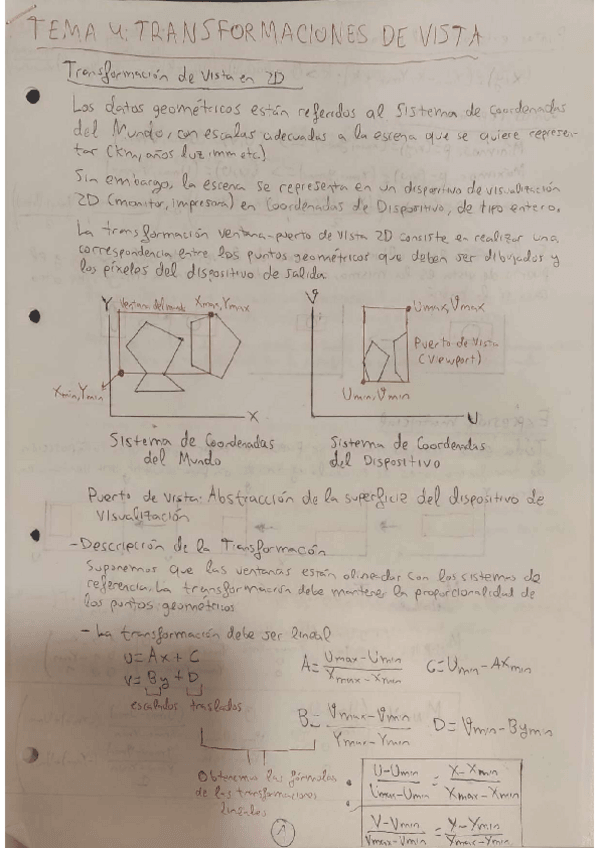 TEMA 4: TRANSFORMACIONES DE VISTA
Transformación de vista en 2D
Los datos geométricos están referidos al Sistema de Coordenadas
del Mundo, con escalas adecuadas a la escena que se quiere represen-
tar (Km, años luz, mm etc.)
Sin embargo, la escena se representa en un dispositivo de visualización
2D (monitor, impresora) en Coordenadas de Dispositivo, de tipo entero.
La transformación ventana-puerto de vista 2D consiste en realizar una
correspondencia entre los puntos geométricos que deben ser dibujados y
los píxeles del dispositivo de salida.
Y Ventana del mundo Xmax, Ymax
Xmin, Ymin
X
Sistema de Coordenadas
del Mundo
V
Umax, Vmax
Puerto de Vista
(Viewport)
Umin, Vmin
U
Sistema de Coordenadas
del Dispositivo
Puerto de vista: Abstracción de la superficie del dispositivo de
visualización
- Descripción de la Transformación
Suponemos que las ventanas están alineadas con los sistemas de
referencia. La transformación debe mantener la proporcionalidad de
los puntos geométricos
- La transformación debe ser lineal
U = Ax + C
V = By + D
escalados traslados
A = Umax - Umin / Xmax - Xmin C = Umin - AXmin
B = Vmax - Vmin / Ymax - Ymin D = Vmin - BYmin
Obtenemos las fórmulas
de las transformaciones
lineales
U - Umin / Umax - Umin = X - Xmin / Xmax - Xmin
V - Vmin / Vmax - Vmin = Y - Ymin / Ymax - Ymin
1